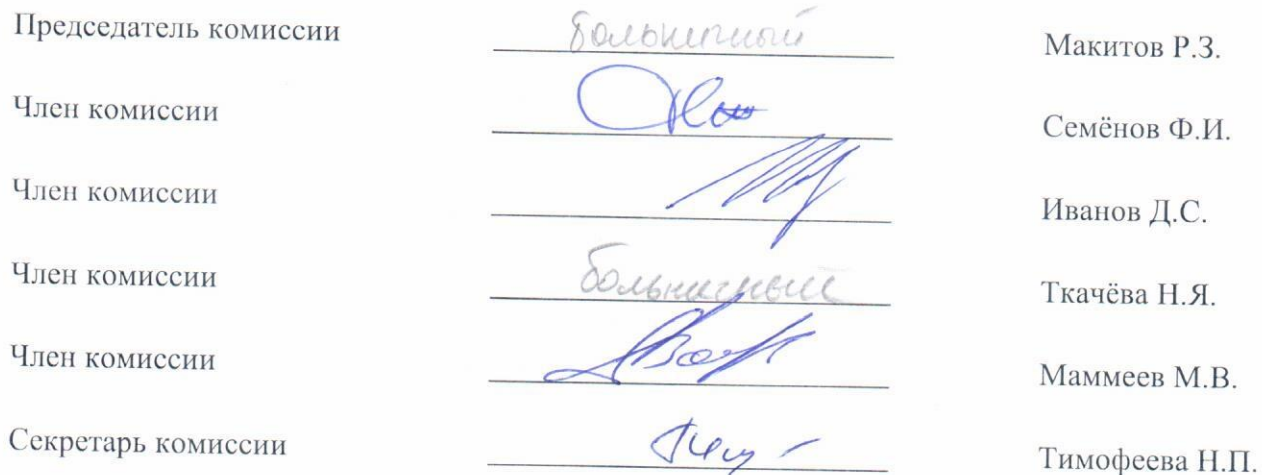 Председатель комиссии больничный Макитов Р.З.
Член комиссии Семёнов Ф.И.
Член комиссии Иванов Д.С.
Член комиссии больничный Ткачёва Н.Я.
Член комиссии Маммеев М.В.
Секретарь комиссии Тимофеева Н.П.